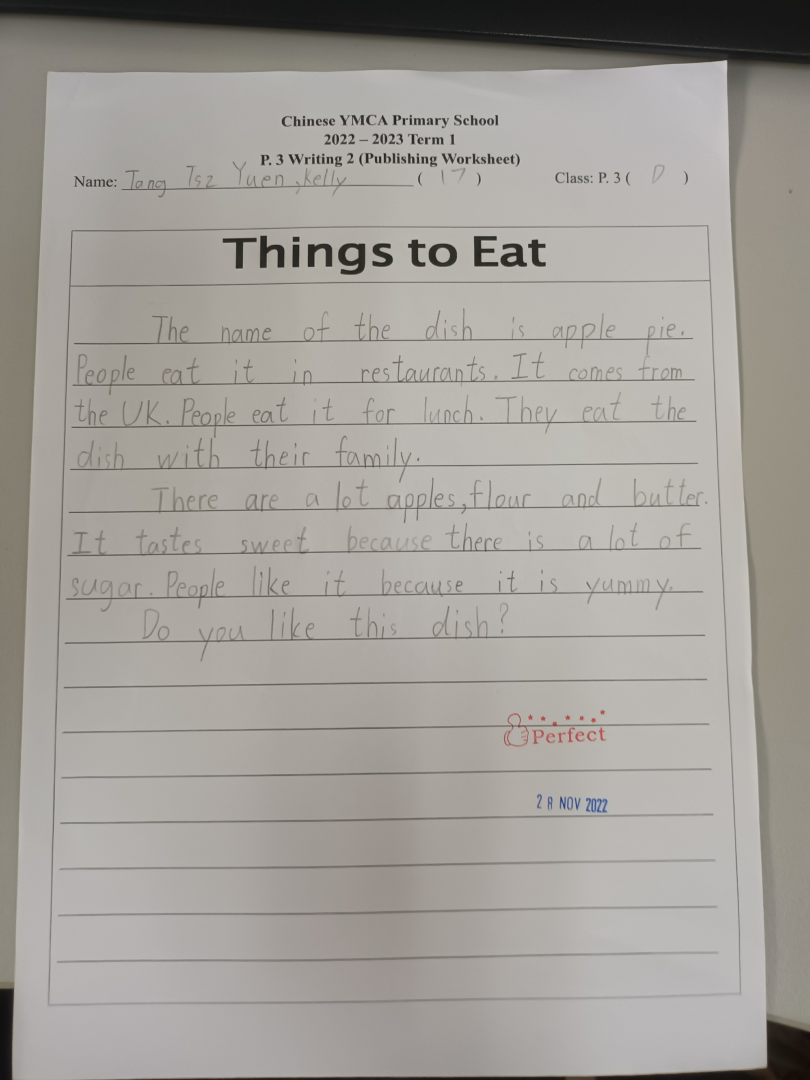 Chinese YMCA Primary School
2022 – 2023 Term 1
P. 3 Writing 2 (Publishing Worksheet)
Name: Tang Tsz Yuen, Kelly ( 17 ) Class: P. 3 ( D )
Things to Eat
The name of the dish is apple pie.
People eat it in restaurants. It comes from
the UK. People eat it for lunch. They eat the
dish with their family.
There are a lot apples, flour and butter.
It tastes sweet because there is a lot of
sugar. People like it because it is yummy.
Do you like this dish?
Perfect
28 NOV 2022